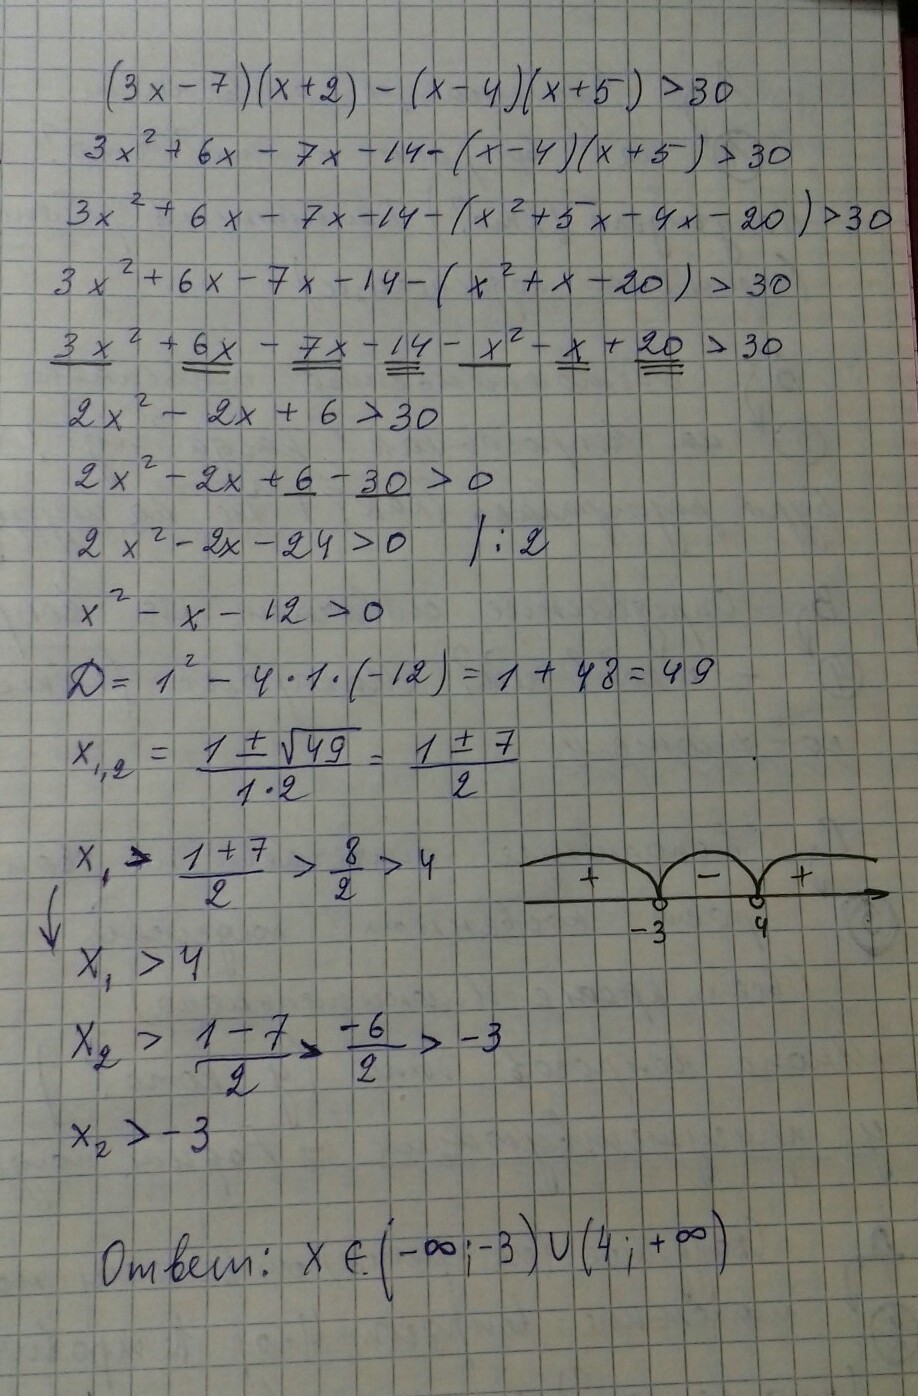 (3x-7)(x+2) - (x-4)(x+5) > 30
3x² + 6x - 7x - 14 - (x-4)(x+5) > 30
3x² + 6x - 7x - 14 - (x² + 5x - 4x - 20) > 30
3x² + 6x - 7x - 14 - (x² + x - 20) > 30
3x² + 6x - 7x - 14 - x² - x + 20 > 30
2x² - 2x + 6 > 30
2x² - 2x + 6 - 30 > 0
2x² - 2x - 24 > 0 / : 2
x² - x - 12 > 0
D = 1² - 4·1·(-12) = 1 + 48 = 49
x₁,₂ = (1 ± √49)/(1·2) = (1 ± 7)/2
x₁ > (1+7)/2 > 8/2 > 4
+ - +
-3 4
x₁ > 4
x₂ > (1-7)/2 > -6/2 > -3
x₂ > -3
Ответ: x ∈ (-∞; -3) ∪ (4; +∞)